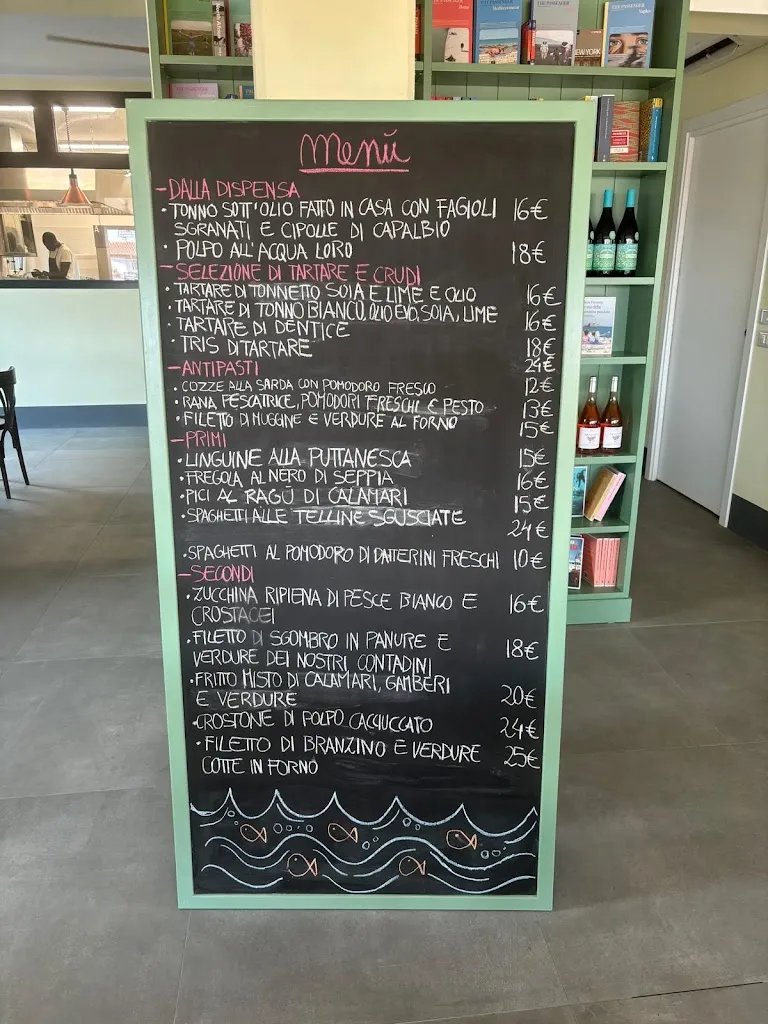 THE PASSENGER
Mediterraneo
THE PASSENGER
Napoli
NEW YORK
Menú
- DALLA DISPENSA
• TONNO SOTT'OLIO FATTO IN CASA CON FAGIOLI 16€
SGRANATI E CIPOLLE DI CAPALBIO
• POLPO ALL'ACQUA LORO 18€
- SELEZIONE DI TARTARE E CRUDI
• TARTARE DI TONNETTO SOIA E LIME E OLIO 16€
• TARTARE DI TONNO BIANCO, OLIO EVO, SOIA, LIME 16€
• TARTARE DI DENTICE 18€
• TRIS DI TARTARE 24€
- ANTIPASTI
• COZZE ALLA SARDA CON POMODORO FRESCO 12€
• RANA PESCATRICE, POMODORI FRESCHI E PESTO 13€
• FILETTO DI MUGGINE E VERDURE AL FORNO 15€
- PRIMI
• LINGUINE ALLA PUTTANESCA 15€
• FREGOLA AL NERO DI SEPPIA 16€
• PICI AL RAGÚ DI CALAMARI 15€
• SPAGHETTI ALLE TELLINE SGUSCIATE 24€
• SPAGHETTI AL POMODORO DI DATTERINI FRESCHI 10€
- SECONDI
• ZUCCHINA RIPIENA DI PESCE BIANCO E 16€
CROSTACEI
• FILETTO DI SGOMBRO IN PANURE E 18€
VERDURE DEI NOSTRI CONTADINI
• FRITTO MISTO DI CALAMARI, GAMBERI 20€
E VERDURE
• CROSTONE DI POLPO CACCIUCCATO 24€
• FILETTO DI BRANZINO E VERDURE 25€
COTTE IN FORNO